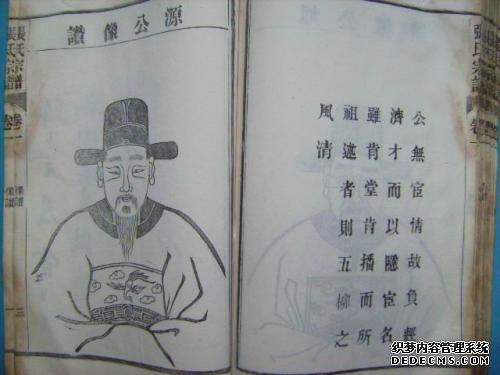 張氏宗譜
卷一
公無宦情故負經
濟才而以隱宦名
雖肯堂肯播而所
祖述者則五柳之
風清
源公像讚
張氏宗譜
卷一
三
织梦内容管理系统
DEDECMS.COM